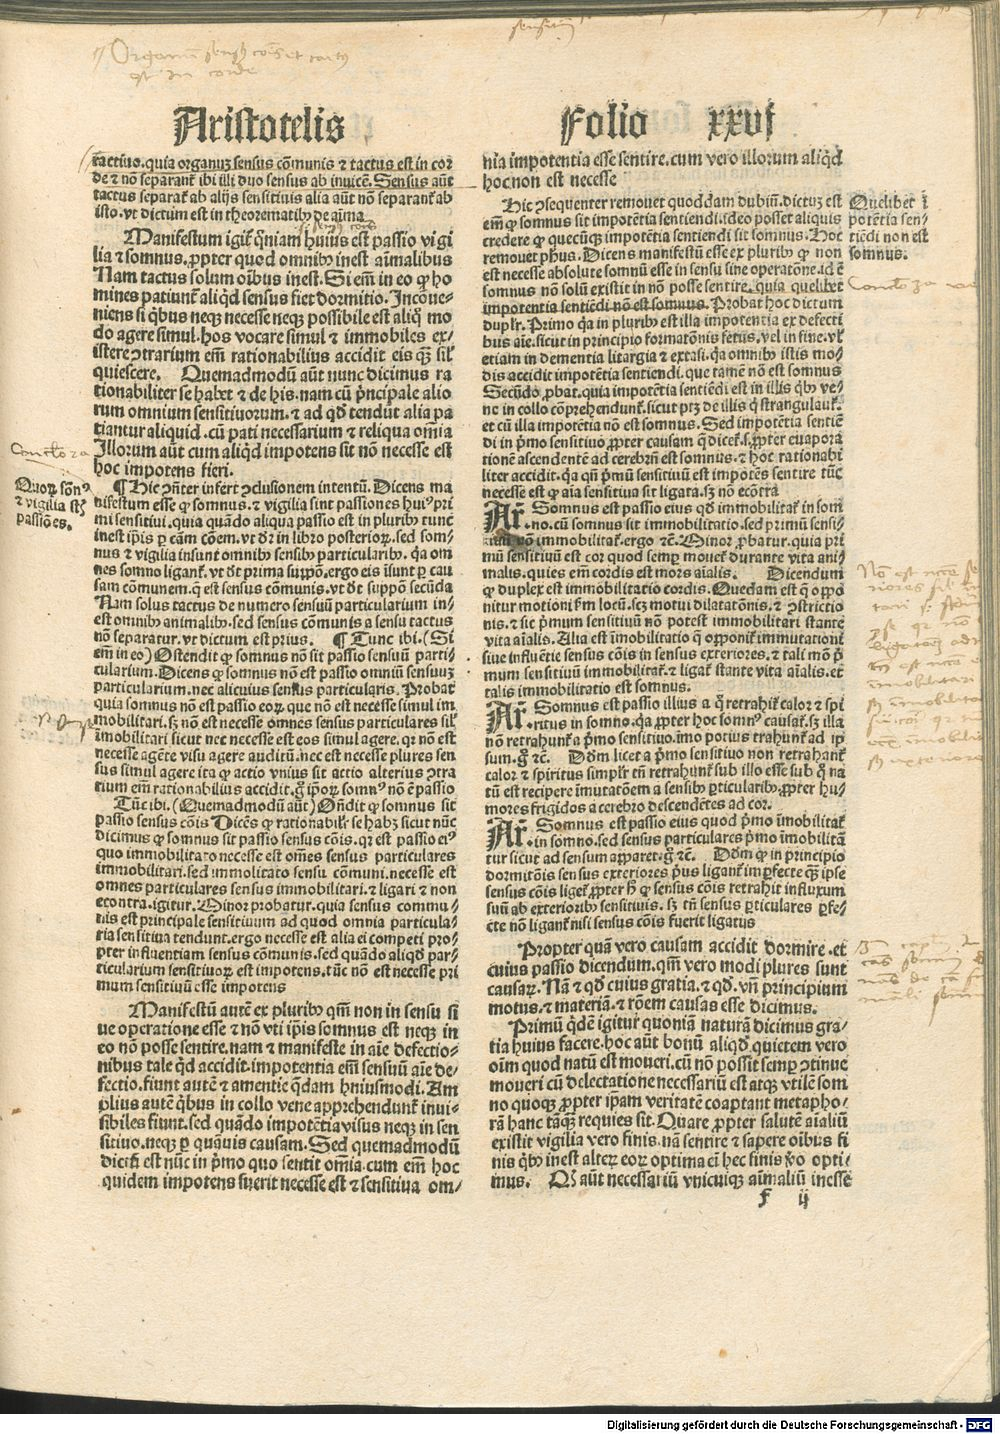 Aristotelis
Folio xxvj
tactiuo. quia organuʒ sensus cōmunis ⁊ tactus est in cor
de ⁊ nō separant᷑ ibi illi duo sensus ab inuicē. Sensus aūt
tactus separat᷑ ab alijs sensitiuis alia aūt nō separant᷑ ab
isto. vt dictum est in theorematibꝰ de aīma
Manifestum igit᷑ qm̄niam huius est passio vigi
lia ⁊ somnus, ꝓpter quod omnibꝰ inest aīmalibus
Nam tactus solum oībus inest. Si em̄ in eo ꝙ ho
mines patiunt᷑ aliqd̄ sensus fiet dormitio. Incōue⸗
niens si qbus neqʒ necesse neqʒ possibile est aliq̄ mo
do agere simul. hos vocare simul ⁊ immobiles ex⸗
istere ↄtrarium em̄ rationabilius accidit eis qʒ sil᷑
quiescere. Quemadmodū aūt nunc dicimus ra
tionabiliter se habet ⁊ de his. nam cū pͥncipale alio
rum omnium sensitiuorum. ⁊ ad qd̄ tendūt alia pa
tiantur aliquid. cū pati necessarium ⁊ reliqua om̄ia
Illorum aūt cum aliqd̄ impotens sit nō necesse est
hoc impotens fieri.
Quoꝝ sōnꝰ
⁊ vigilia st̄
passiōes.
¶ Hic ↄn̄ter infert ↄclusionem intentū. Dicens ma
nifestum esse ꝙ somnus. ⁊ vigilia sint passiones huiꝰ pri
mi sensitiui. quia quādo aliqua passio est in pluribꝰ tunc
inest ip̄is ꝑ cām cōem. vt dr̄ in libro posterioꝝ. sed som⸗
nus ⁊ vigilia insunt omnibꝰ sensibꝰ particularibꝰ. qa om
nes somno ligant᷑. vt dt̄ prima suppō. ergo eis īsunt ꝑ cau
sam cōmunem. q̄ est sensus cōmunis. vt dt̄ suppō secūda
Nam solus tactus de numero sensuū particularium in⸗
est omnibꝰ animalibꝰ. sed sensus cōmunis a sensu tactus
nō separatur. vt dictum est prius. ¶ Tunc ibi. (Si
em̄ in eo) Ostendit ꝙ somnus nō sit passio sensuū parti⸗
cularium. Dicens ꝙ somnus nō est passio omniū sensuuʒ
particularium. nec alicuius sensus particularis. Probat
quia somnus nō est passio eoꝝ que nō est necesse simul im
mobilitari. sʒ nō est necesse omnes sensus particulares sil᷑
īmobilitari sicut nec necesse est eos simul agere. qꝛ nō est
necesse agēte visu agere auditū. nec est necesse plures sen
sus simul agere ita ꝙ actio vnius sit actio alterius ↄtra
rium em̄ rationabilius accidit. gͦ ip̄oꝝ somnꝰ nō ē passio
Tūc ibi. (Quemadmodū aūt) Oñdit ꝙ somnus sit
passio sensus cōis Dicēs ꝙ rationabilʳ se habʒ sicut nūc
dicimus ꝙ somnus sit passio sensus cōis. qꝛ est passio eiꝰ
quo immobilitato necesse est om̄es sensus particulares
immobilitari. sed immolitato sensu cōmuni. necesse est
omnes particulares sensus immobilitari. ⁊ ligari ⁊ non
econtra. igitur. Minor probatur. quia sensus commu⸗
nis est principale sensitiuum ad quod omnia particula⸗
ria sensitiua tendunt. ergo necesse est alia ei competi pro⸗
pter influentiam sensus cōmunis. sed quādo aliqd̄ par⸗
ticularium sensitiuoꝝ est impotens. tūc nō est necesse pri
mum sensitiuū esse impotens
Manifestū autē ex pluribꝰ qm̄ non in sensu si
ue operatione esse ⁊ nō vti ip̄is somnus est neqʒ in
eo nō posse sentire. nam ⁊ manifeste in aīe defectio⸗
nibus tale qd̄ accidit. impotentia em̄ sensuū aīe de⸗
fectio. fiunt autē ⁊ amentie qd̄am huiusmodi. Am
plius autē qbus in collo vene apprehendunt᷑ inui⸗
sibiles fiunt. sed quādo impotētia visus neqʒ in sen
sitiuo. neqʒ ꝑ quāuis causam. Sed quemadmodū
dictū est nūc in pͥmo quo sentit om̄ia. cum em̄ hoc
quidem impotens fuerit necesse est ⁊ sensitiua om⸗
nia impotentia esse sentire. cum vero illorum aliqd̄
hoc non est necesse
Quelibet ī
potētia sen⸗
tiēdi non est
somnus.
Hic ↄsequenter remouet quoddam dubiū. dictuʒ est
em̄ ꝙ somnus sit impotētia sentiendi. ideo posset aliquis
credere ꝙ quecūqʒ impotētia sentiendi sit somnus. Hoc
remouet ph̄us. Dicens manifestū esse ex pluribꝰ ꝙ non
est necesse absolute somnū esse in sensu sine operatōne. id ē
somnus nō solū existit in nō posse sentire. quia quelibet
impotentia sentiēdi nō est somnus. Probat hoc dictum
duplr̄. Primo qa in pluribꝰ est illa impotentia ex defecti
bus aīe. sicut in principio formatōnis fetus. vel in fine. vl᷑
etiam in dementia litargia ⁊ extasi. qa omnibꝰ istis mo⸗
dis accidit impotētia sentiendi. que tamē nō est somnus
Secūdo ꝓbat. quia impotētia sentiēdi est in illis qbꝰ ve⸗
ne in collo cōprehendunt᷑. sicut ptʒ de illis q strangulaūt᷑.
et cū illa impotētia nō est somnus. Sed impotētia sentiē
di in pͥmo sensitiuo ꝓpter causam q̄ dicet᷑. s. ꝓpter euapora
tionē ascendentē ad cerebrū est somnus. ⁊ hoc rationabi
liter accidit. qa qn̄ pͥmū sensitiuū est impotēs sentire tūc
necesse est ꝙ aīa sensitiua sit ligata. sʒ nō ecōtra
Ar. Somnus est passio eius qd̄ immobilitat᷑ in som
no. cū somnus sit immobilitatio. sed primū sensi⸗
tiuū nō immobilitat᷑. ergo ⁊c̄. Minor ꝓbatur. quia pri
mū sensitiuū est cor quod semꝑ mouet᷑ durante vita ani⸗
malis. quies em̄ cordis est mors aīalis. Dicendum
ꝙ duplex est immobilitatio cordis. Quedam est q̄ oppo
nitur motioni ſm locū. scʒ motui dilatatōnis. ⁊ ↄstrictio
nis. ⁊ sic pͥmum sensitiuū nō potest immobilitari stante
vita aīalis. Alia est īmobilitatio q̄ opponit᷑ immutationi
siue influētie sensus cōis in sensus exteriores. ⁊ tali mō pͥ
mum sensitiuū immobilitat᷑. ⁊ ligat᷑ stante vita aīalis. et
talis immobilitatio est somnus.
Ar. Somnus est passio illius a q̄ retrahit᷑ calor ⁊ spi
ritus in somno. qa ꝓpter hoc somnꝰ causat᷑. sʒ illa
nō retrahunt᷑ a pͥmo sensitiuo. imo potius trahunt᷑ ad ip
sum. gͦ ⁊c̄. Dōm licet a pͥmo sensitiuo non retrahant᷑
calor ⁊ spiritus simplr̄ tn̄ retrahunt᷑ sub illo esse sub q̄ na
tū est recipere īmutatōem a sensibꝰ ꝑticularibꝰ. ꝓpter hu⸗
mores frigidos a cerebro descendētes ad cor.
Ar. Somnus est passio eius quod pͥmo īmobilitat᷑
in somno. sed sensus particulares pͥmo īmobilitā
tur sicut ad sensum apparet. gͦ ⁊c̄. Dōm ꝙ in principio
dormitōis sensus exteriores pͥus ligant᷑ imꝑfecte qʒ ipse
sensus cōis liget᷑ ꝓpter h̄ ꝙ sensus cōis retrahit influxum
suū ab exterioribꝰ sensitiuis. sʒ tn̄ sensus ꝑticulares ꝑfe⸗
cte nō ligant᷑ nisi sensus cōis fuerit ligatus
Propter quā vero causam accidit dormire. et
cuius passio dicendum. qm̄ vero modi plures sunt
causaꝝ. Nā ⁊ qd̄ cuius gratia. ⁊ qd̄. vn̄ principium
motus. ⁊ materiā. ⁊ rōem causas esse dicimus.
Primū qd̄ē igitur quoniā naturā dicimus gra⸗
tia huius facere. hoc aūt bonū aliqd̄ quietem vero
oīm quod natū est moueri. cū nō possit semꝑ ↄtinue
moueri cū delectatione necessariū est atqʒ vtilē som
no quoqʒ ꝓpter ipam veritatē coaptant metapho⸗
rā hanc tāqʒ requies sit. Quare ꝓpter salutē aīaliū
existit vigilia vero finis. nā sentire ⁊ sapere oībus fi
nis qbꝰ inest alterꝝ eoꝝ optima cū hec finis vͦo opti⸗
mus. Qd̄ aūt necessariū vnicuiqʒ aīmaliū inesse
f ij
Digitalisierung gefördert durch die Deutsche Forschungsgemeinschaft - DFG